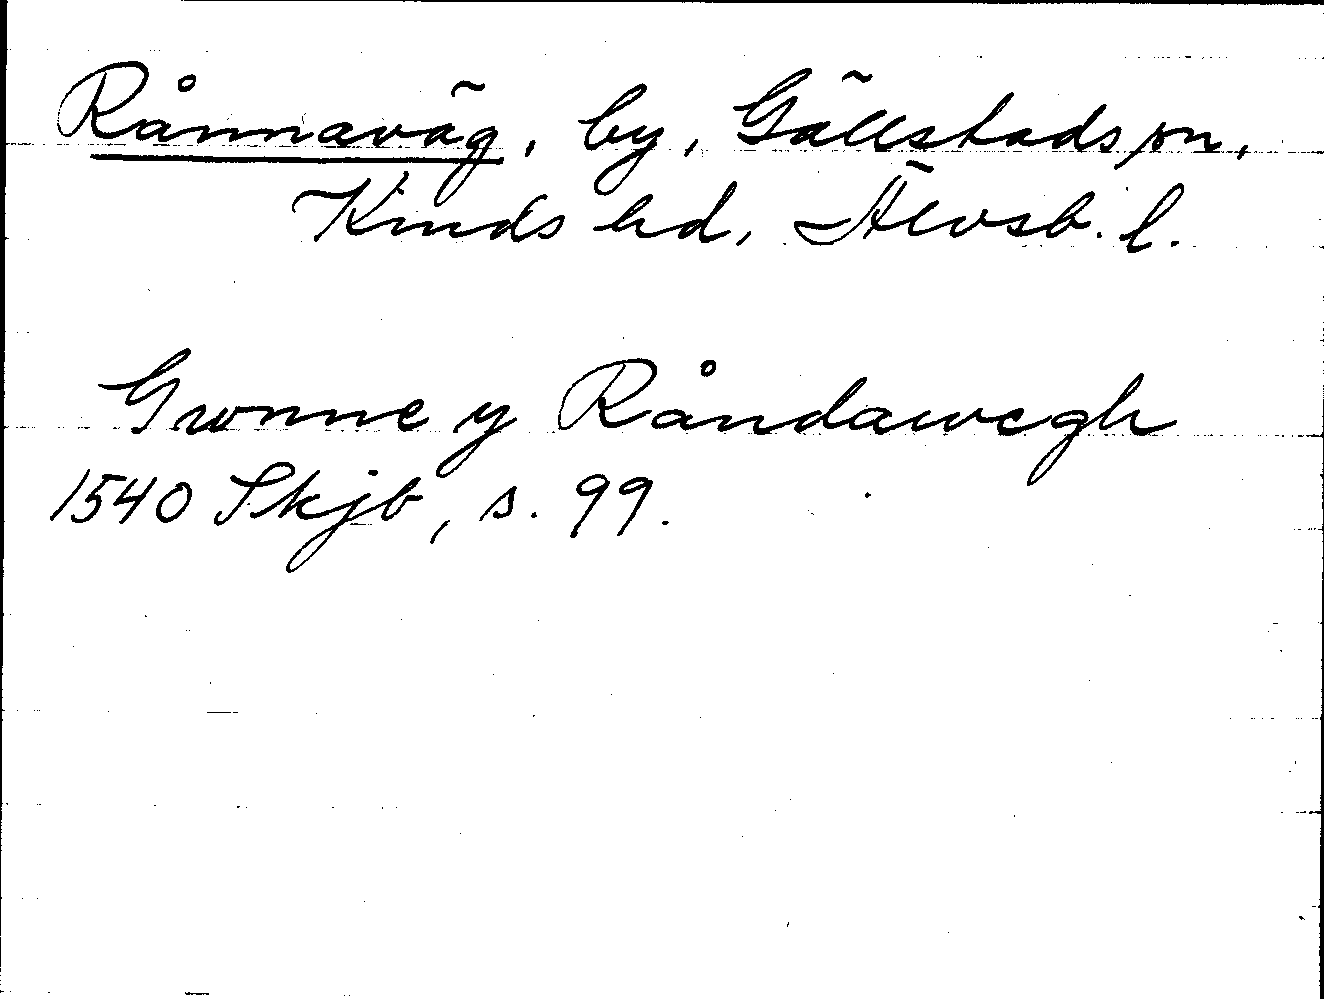 Rånnaväg, by, Gällstads sn,
Kinds hd, Älvsb. l.
Gwnne yRåndawegh
1540 Skjb, s. 99.